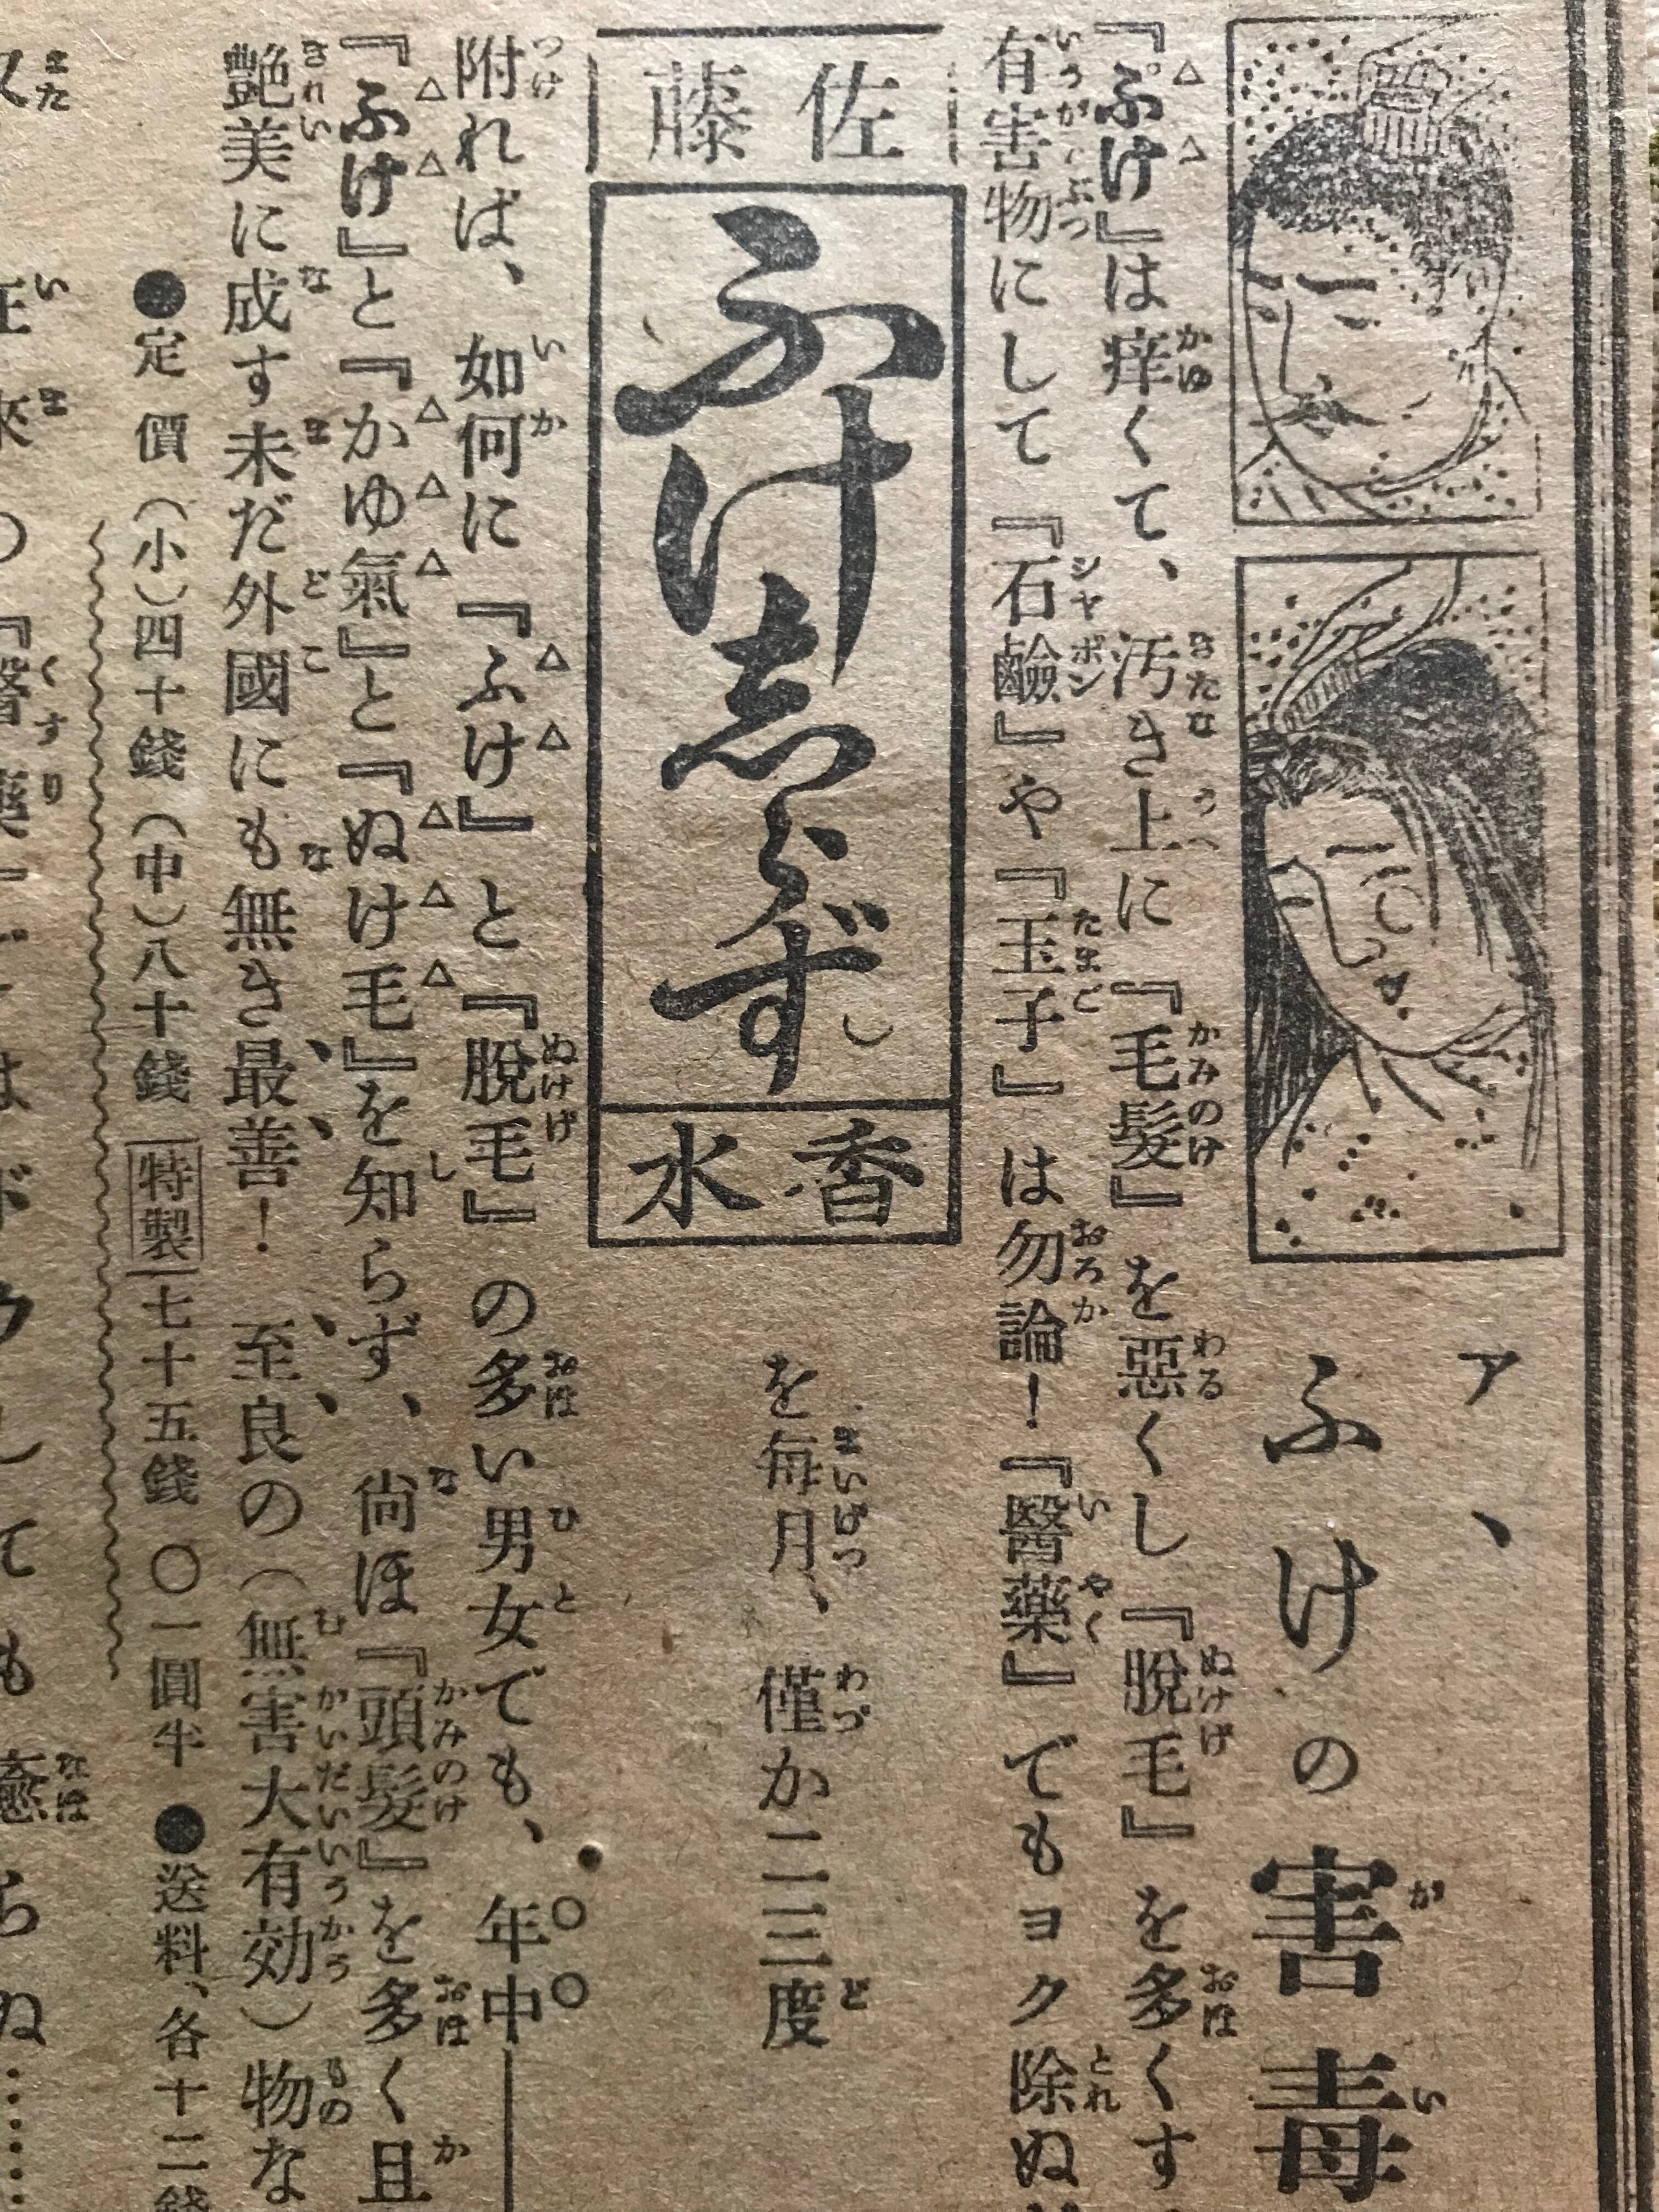 ア、
ふけの害毒
『ふけ』は痒くて、汚き上に『毛髪』を惡くし『脫毛』を多くす
有害物にして『石鹼』や『玉子』は勿論！『醫藥』でもヨク除ぬ
佐藤
ふけ志らず
香水
を每月、僅か二三度
附れば、如何に『ふけ』と『脫毛』の多い男女でも、年中
『ふけ』と『かゆ氣』と『ぬけ毛』を知らず、尙ほ『頭髪』を多く且
艶美に成す未だ外國にも無き最善！至良の（無害大有効）物な
●定價（小）四十錢（中）八十錢 特製 七十五錢 〇一圓半 ●送料、各十二錢